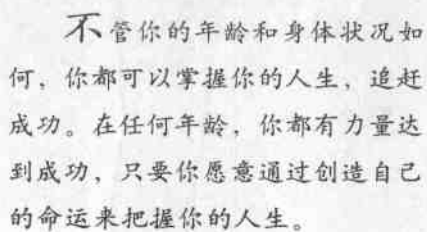 不管你的年龄和身体状况如
何，你都可以掌握你的人生，追赶
成功。在任何年龄，你都有力量达
到成功，只要你愿意通过创造自己
的命运来把握你的人生。